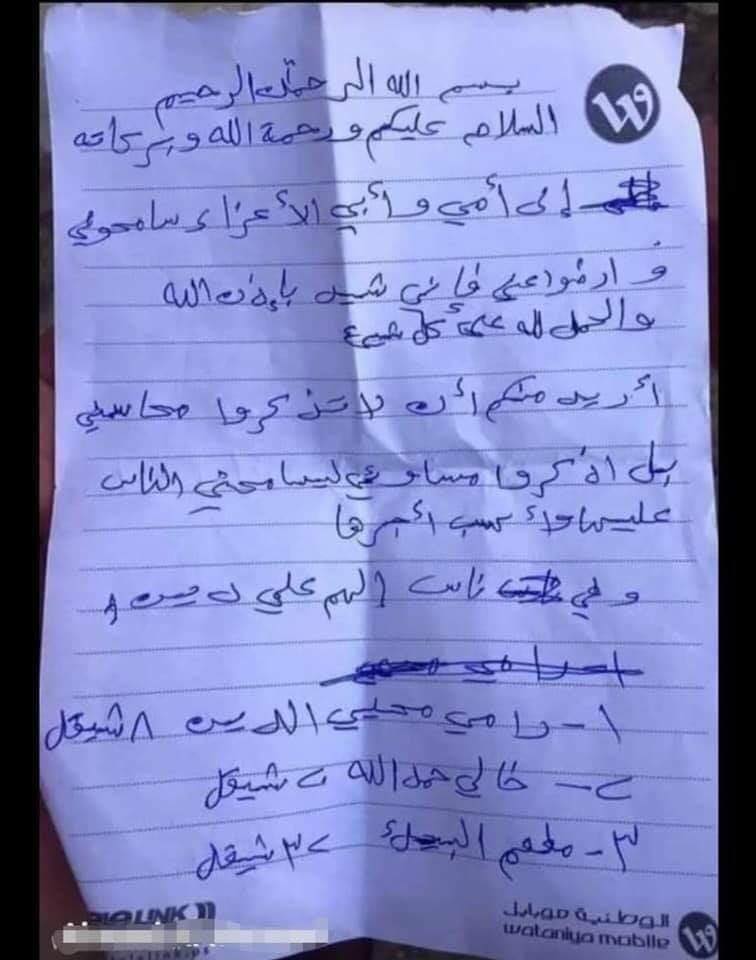 بسم الله الرحمن الرحيم
السلام عليكم ورحمة الله وبركاته
إلى أمي وأبي الأعزاء سامحوني
وارضوا عني فإني شهيد بإذن الله
والحمد لله على كل شيء
أريد منكم أن لا تذكروا محاسني
بل اذكروا مساوئي ليسامحني الناس
عليها وأكسب أجرها
وفي ناس الهم علي دين
١- رامي محيي الدين ٨ شيقل
٢- خالي حمد الله ٢ شيقل
٣- مطعم ٢٣ شيقل
LINK
الوطنية موبايل
wataniya mobile